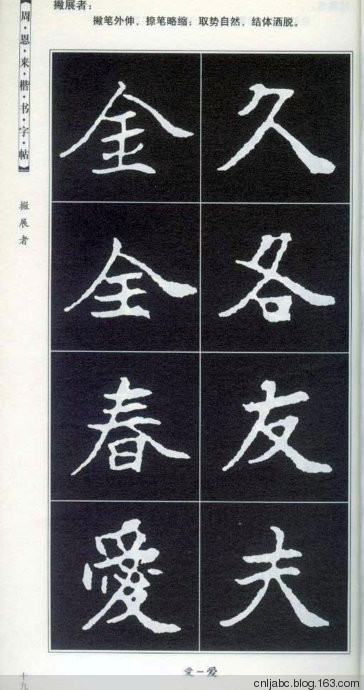 撇展者：
撇笔外伸，捺笔略缩；取势自然，结体洒脱。
【周·恩·来·楷·书·字·帖】
撇展者
金 久
全 各
春 友
愛 夫
愛－爱
十九
cnljabc.blog.163.com